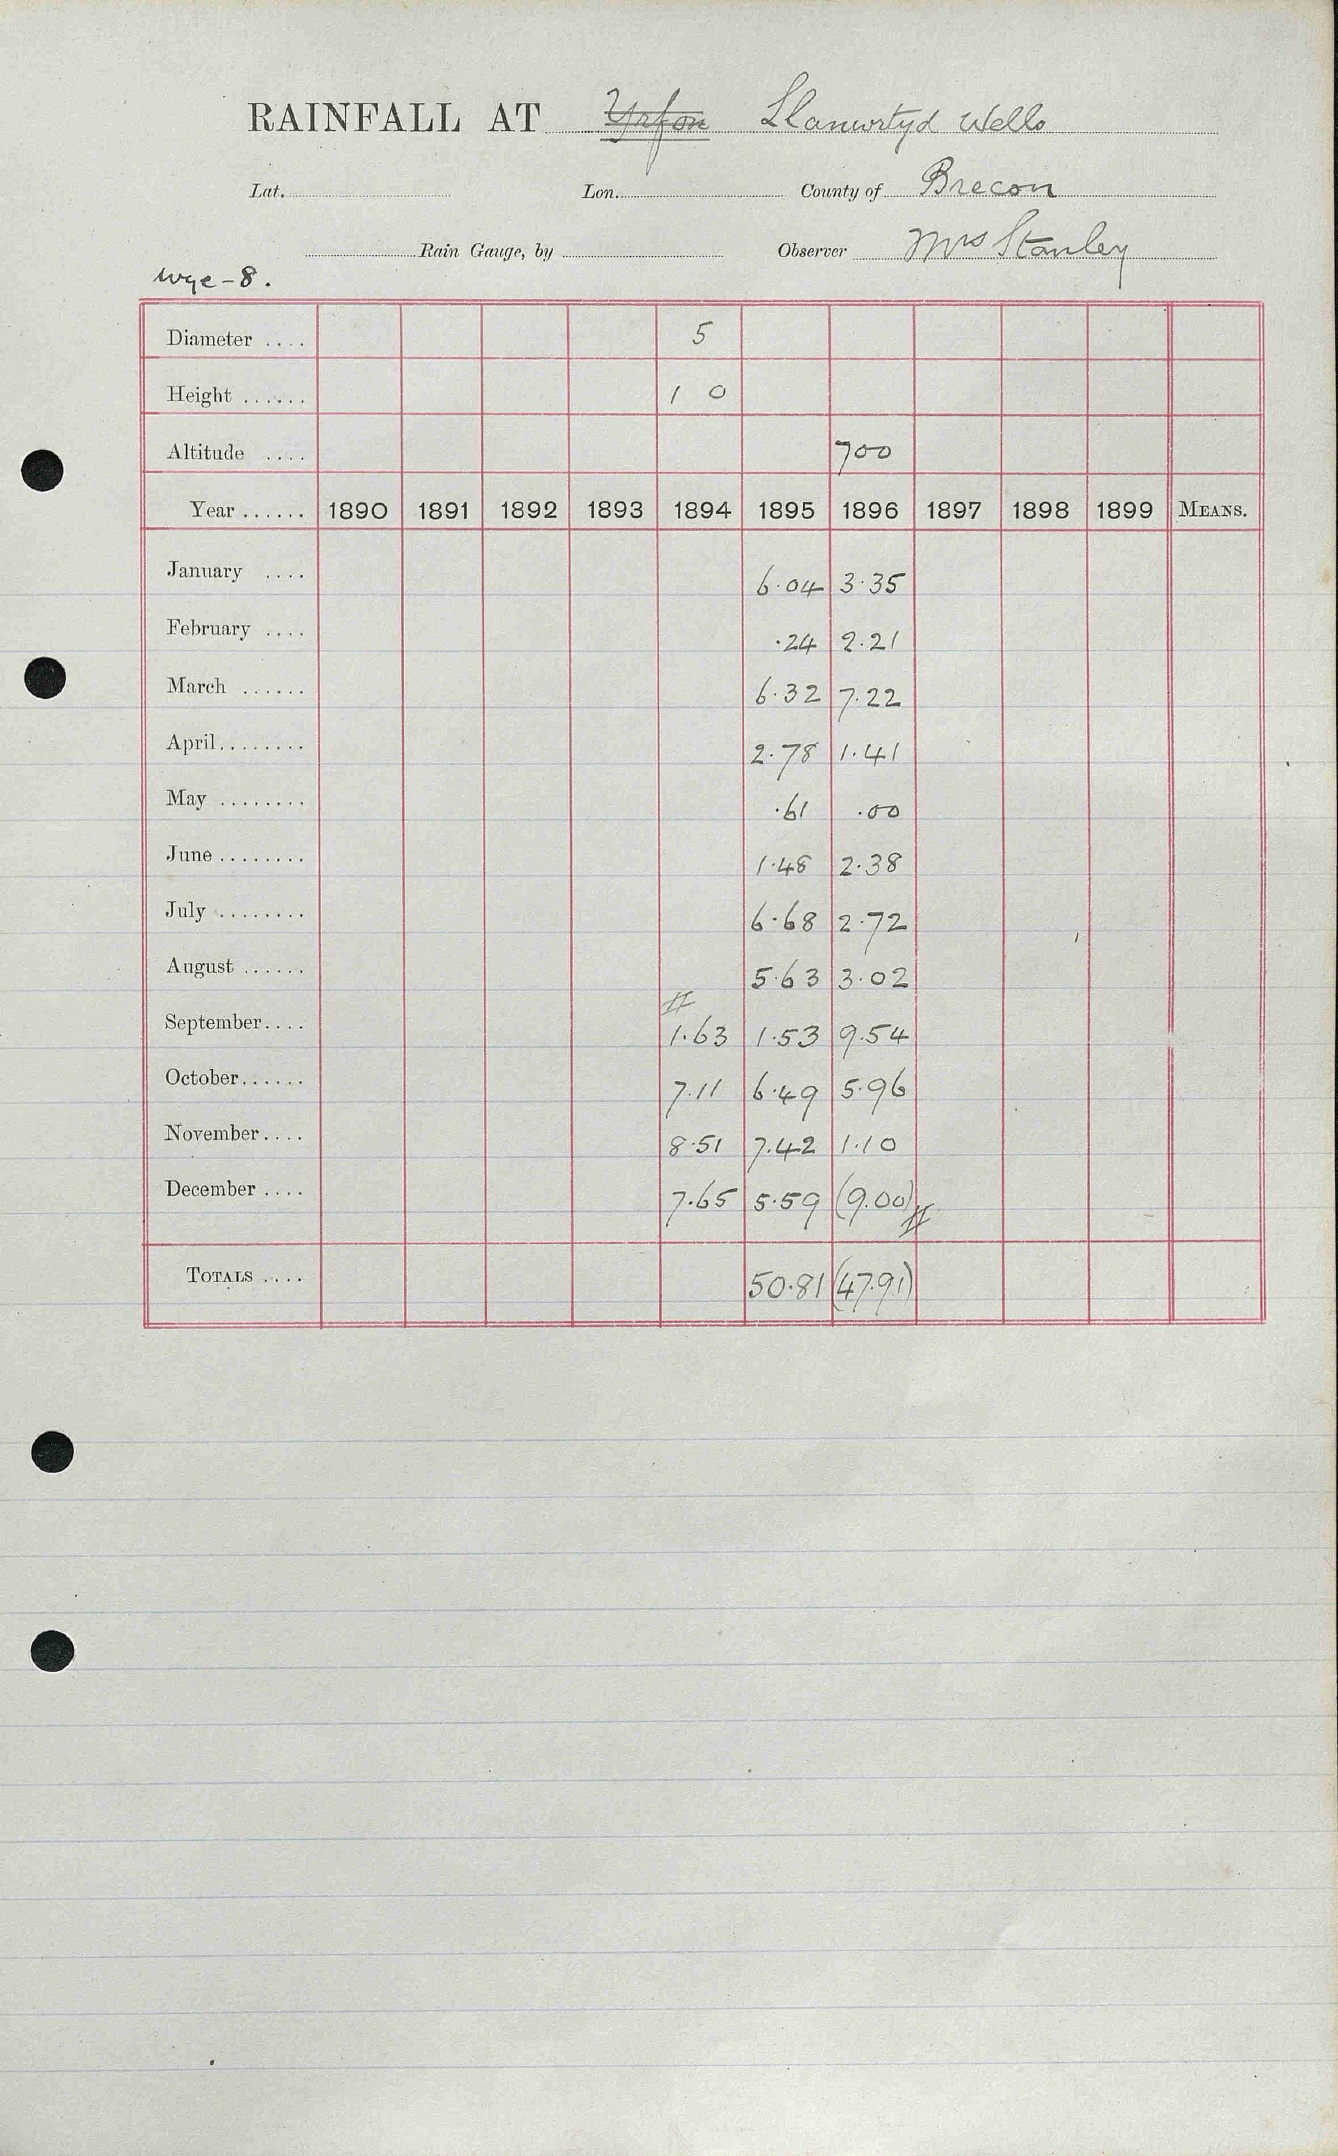 RAINFALL AT Yrfon Llanwrtyd Wells
Lat. Lon. County of Brecon
Rain Gauge, by Observer Mrs Stanley
Wye-8.
Diameter .... 5
Height ...... 1 0
Altitude .... 700
Year ...... 1890 1891 1892 1893 1894 1895 1896 1897 1898 1899 MEANS.
January .... 6.04 3.35
February .... .24 2.21
March ...... 6.32 7.22
April........ 2.78 1.41
May ........ .61 .00
June ........ 1.48 2.38
July ........ 6.68 2.72
August ...... 5.63 3.02
September.... 1.63 1.53 9.54
October...... 7.11 6.49 5.96
November.... 8.51 7.42 1.10
December .... 7.65 5.59 (9.00)
TOTALS .... 50.81 (47.91)